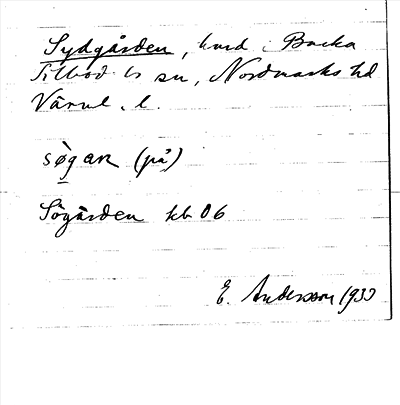 Sydgården, hmd i Backa
Sillbod ls sn, Nordmarks hd
Värml. l.
sø̀gaɴ (på)
Sögården kb 06
E. Andersson 1930